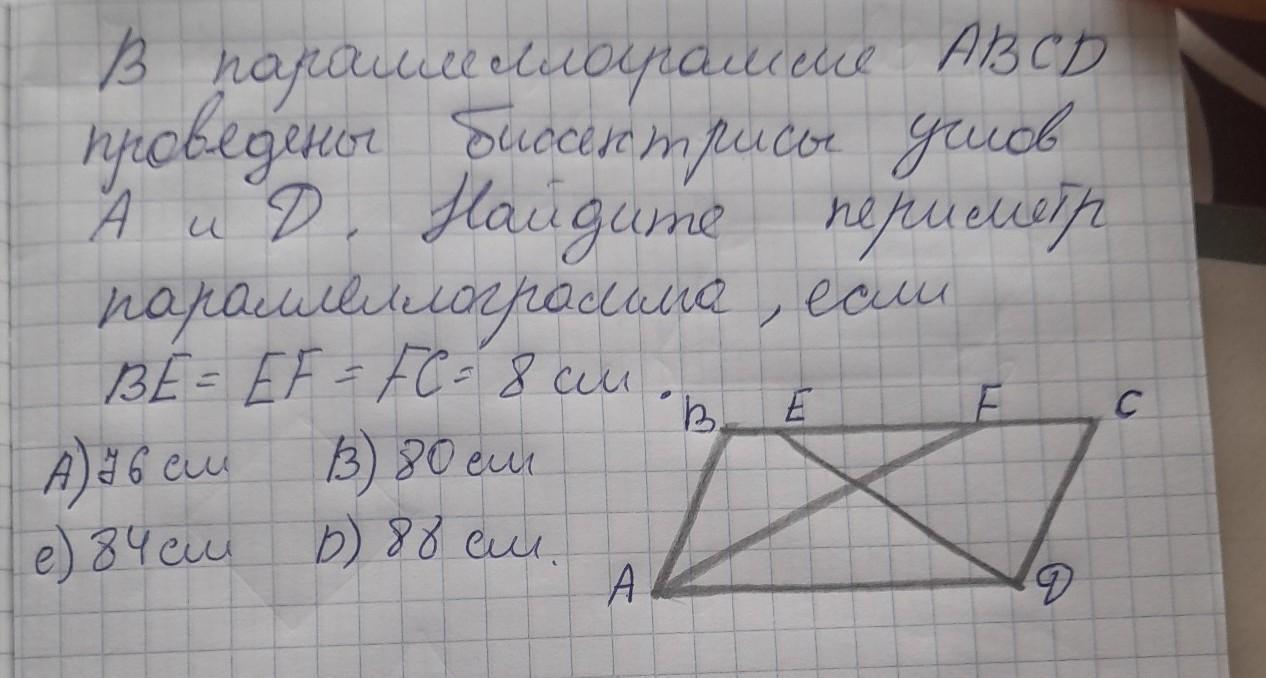 В параллеллограмме ABCD
проведены биссектрисы углов
A и D. Найдите периметр
параллеллограмма, если
BE = EF = FC = 8 см.
A) 76 см B) 80 см
C) 84 см D) 88 см.
B E F C
A D